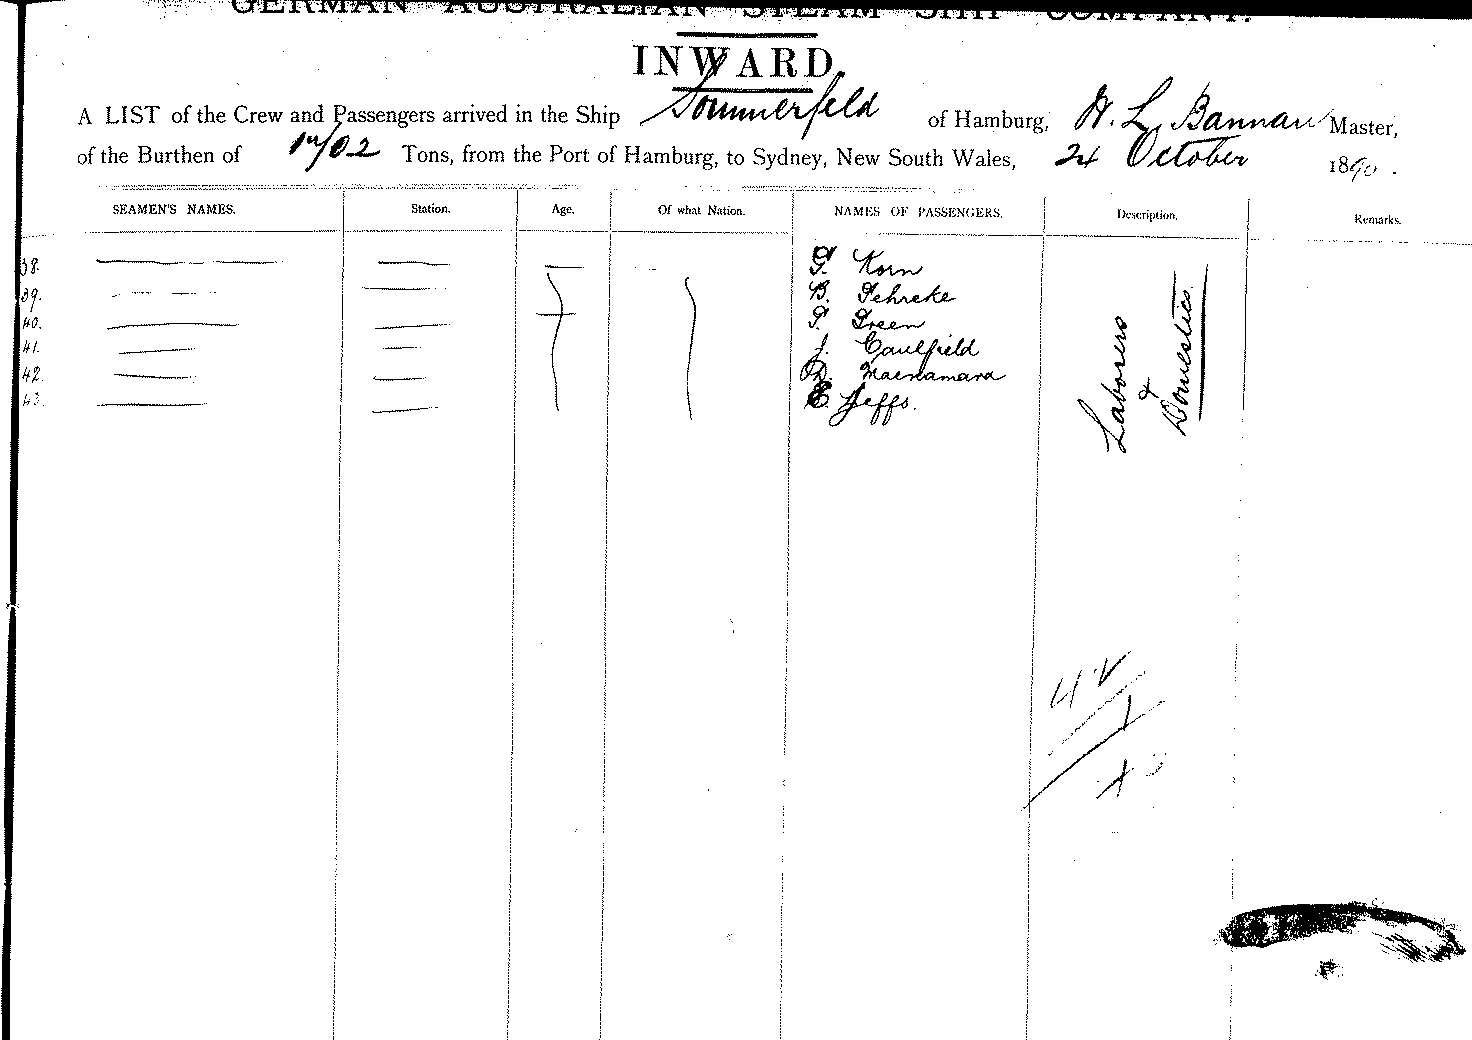 GERMAN AUSTRALIAN STEAM SHIP COMPANY.
INWARD.
A LIST of the Crew and Passengers arrived in the Ship Sommerfeld of Hamburg, H. L. Bannau Master,
of the Burthen of Tons, from the Port of Hamburg, to Sydney, New South Wales, 24 October 1890.
SEAMEN'S NAMES. Station. Age. Of what Nation. NAMES OF PASSENGERS. Description. Remarks.
38. G. Korn
39. B. Gehrcke
40. Green
41. J. Caulfield
42. Macnamara
43. E. Jeffs.
Laborers
&
Domestics